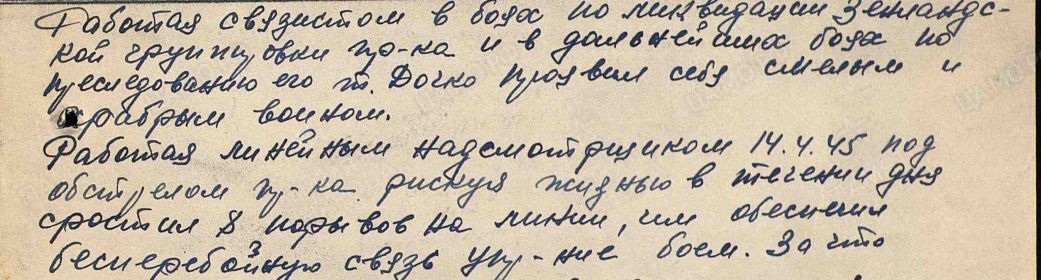 Работая связистом в боях по ликвидации Земландс-
кой группировки пр-ка и в дальнейших боях по
преследованию его т. Дочко проявил себя смелым и
храбрым воином.
Работая линейным надсмотрщиком 14.4.45 под
обстрелом пр-ка рискуя жизнью в течении дня
сростил 8 порывов на линии, чем обеспечил
бесперебойную связь упр-ние боем. За что